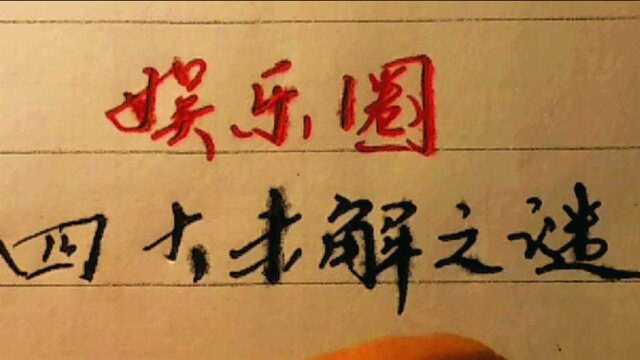 娱乐圈
四大未解之谜